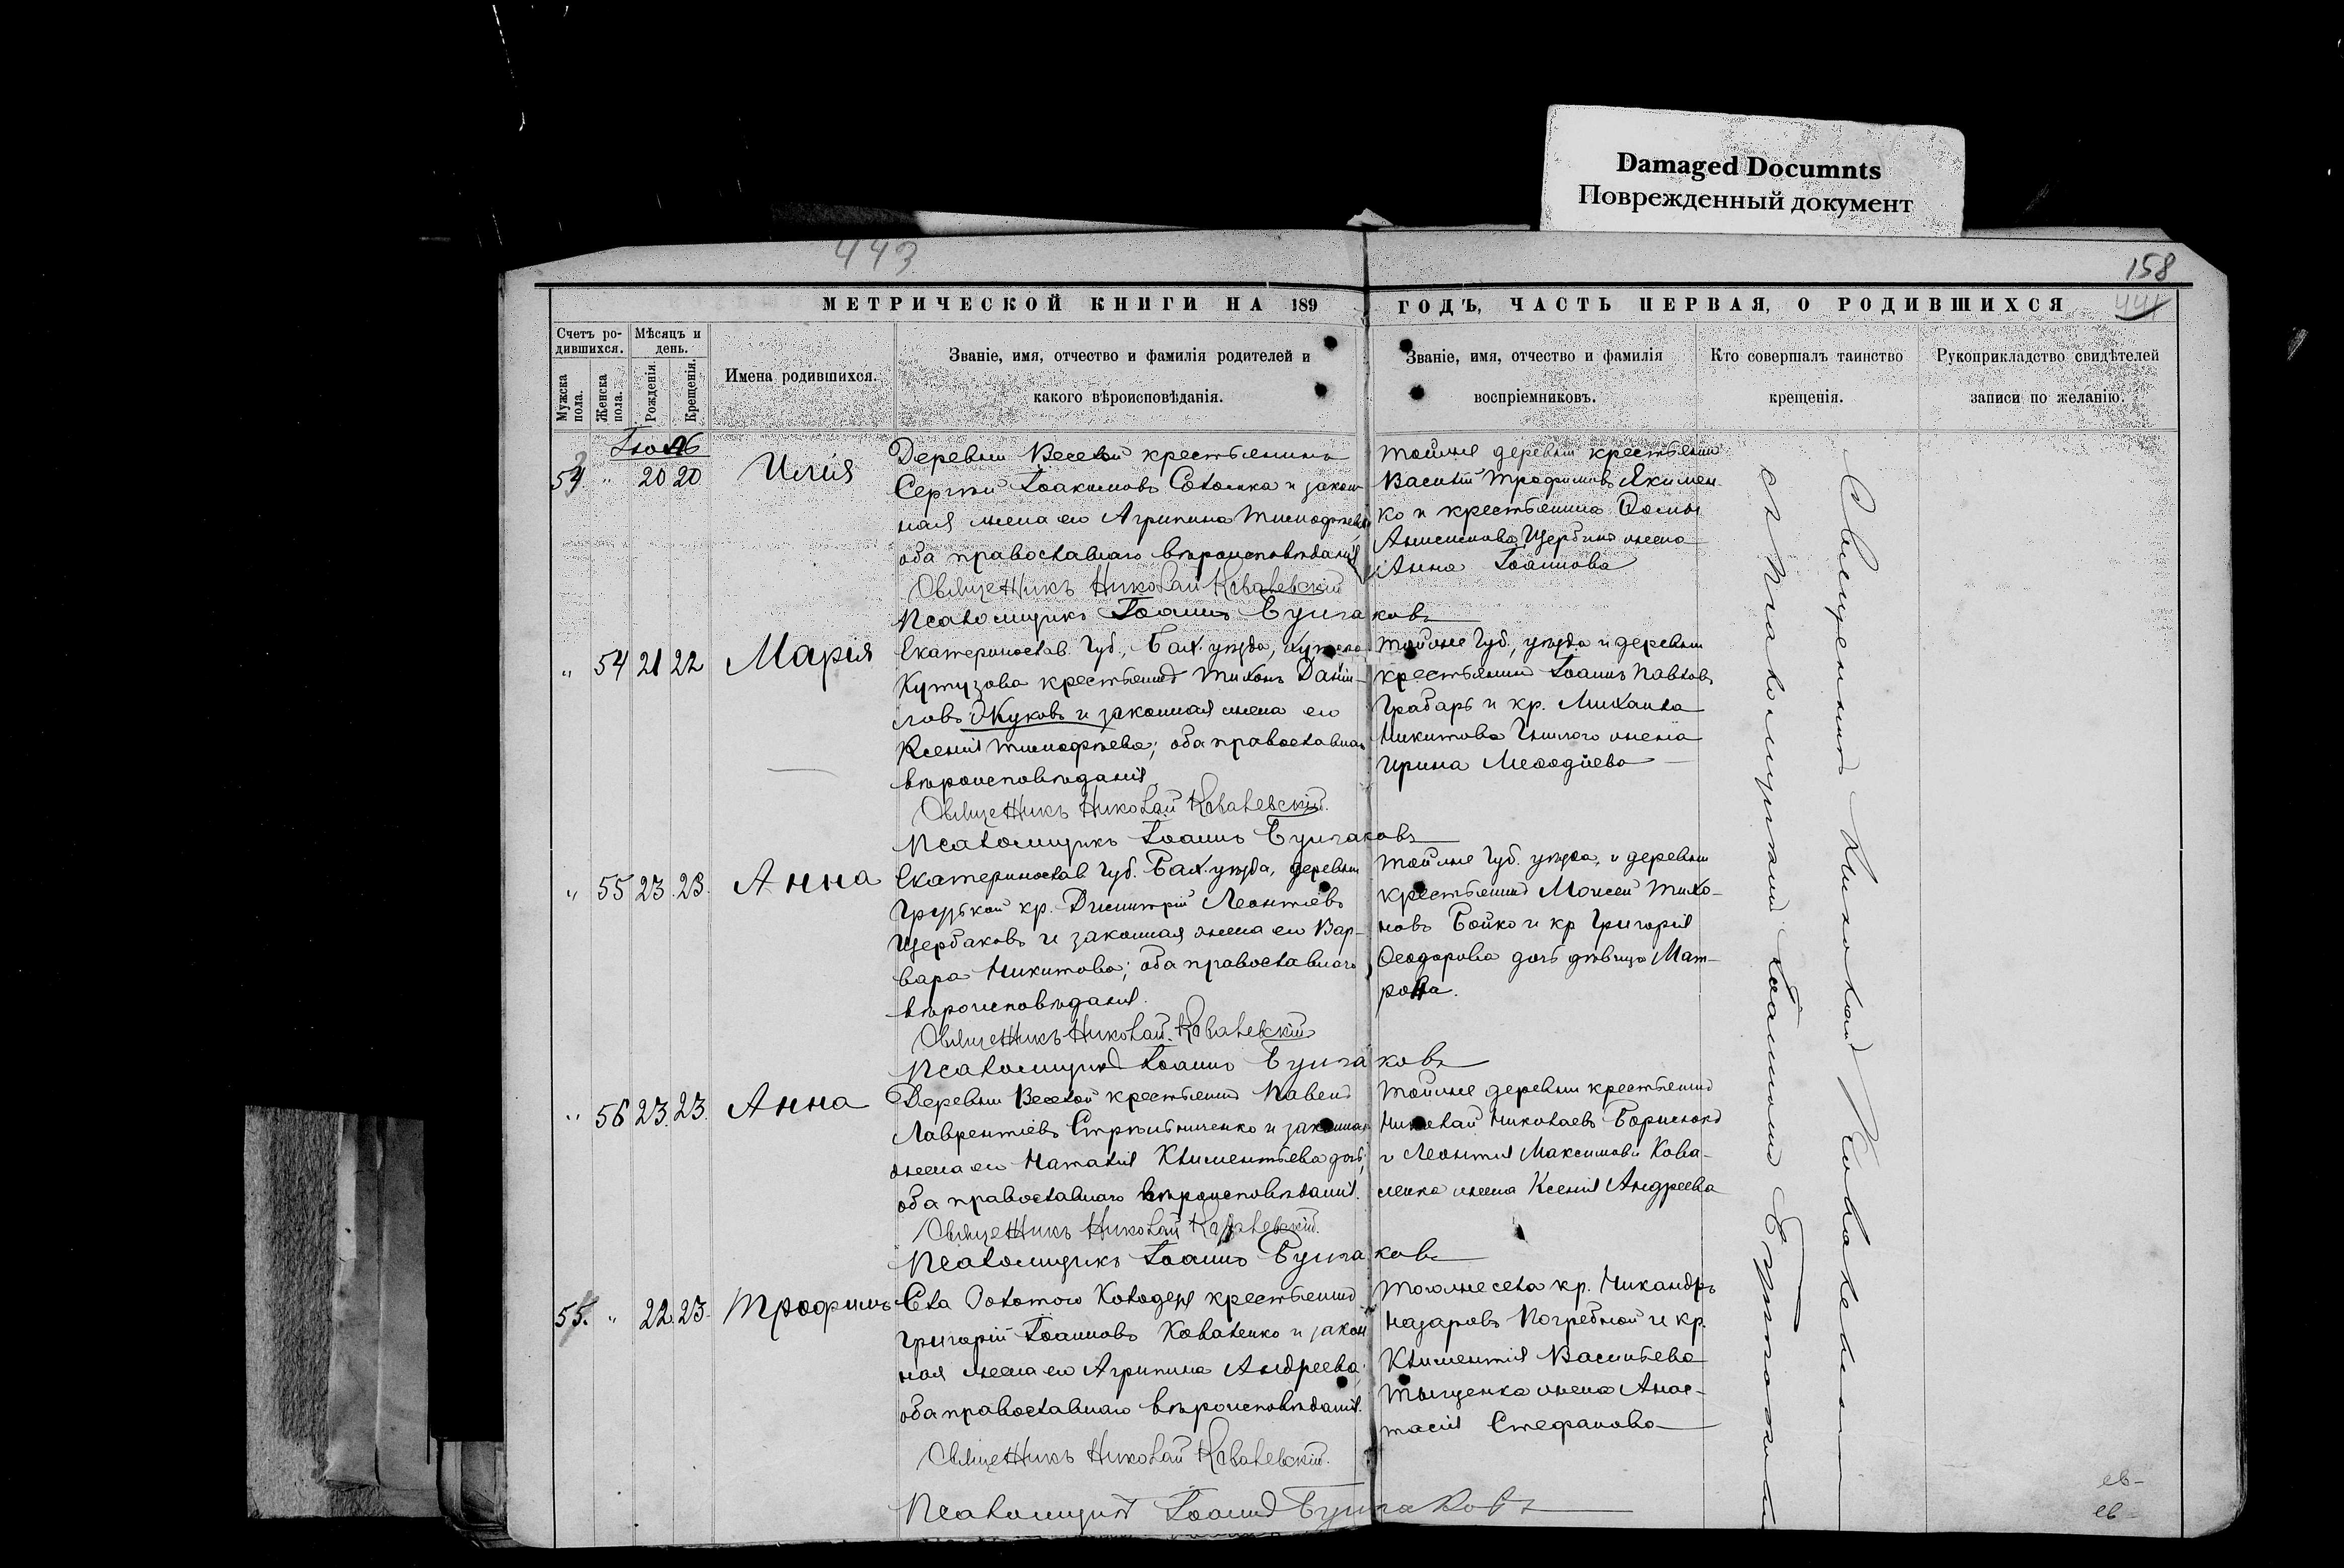 Damaged Documnts
Поврежденный документ
443
158
441
МЕТРИЧЕСКОЙ КНИГИ НА 189
ГОДЪ, ЧАСТЬ ПЕРВАЯ, О РОДИВШИХСЯ
Счетъ ро-
дившихся.
Мужска
пола.
Женска
пола.
Мѣсяцъ и
день.
Рожденія.
Крещенія.
Имена родившихся.
Званіе, имя, отчество и фамилія родителей и
какого вѣроисповѣданія.
Званіе, имя, отчество и фамилія
воспріемниковъ.
Кто совершалъ таинство
крещенія.
Рукоприкладство свидѣтелей
записи по желанію.
Іюль
54 " 20 20 Илія
Деревни Веселой крестьянинъ
Сергѣй Іоакимовъ и закон-
ная жена его Агрипина Тимофѣева
оба православнаго вѣроисповѣданія
Священникъ Николай Ковалевскій
Псаломщикъ Іоаннъ Булгаковъ
тойже деревни крестьянинъ
Василій Трофимовъ Якимен-
ко и крестьянина Фомы
Анисимова Щербины жена
Анна Іоаннова
" 54 21 22 Марія
Екатеринослав. Губ., Бах. уѣзда,
Кутузова крестьянинъ Тихонъ Даніи-
ловъ Жуковъ и законная жена его
Ксенія Тимофѣева; оба православнаго
вѣроисповѣданія
Священникъ Николай Ковалевскій.
Псаломщикъ Іоаннъ Булгаковъ
тойже Губ., уѣзда и деревни
крестьянинъ Іоаннъ Павловъ
Грабарь и кр. Михаила
Никитова Гнилого жена
Ирина Меѳодіева
" 55 23. 23. Анна
Екатеринослав Губ. Бах. уѣзда, деревни
Грузской кр. Димитрій Леонтіевъ
Щербаковъ и законная жена его Вар-
вара Никитова; оба православнаго
вѣроисповѣданія.
Священникъ Николай Ковалевскій
Псаломщикъ Іоаннъ Булгаковъ
тойже Губ. уѣзда, и деревни
крестьянинъ Моисей Тихо-
новъ Бойко и кр Григорія
Ѳеодорова дочь дѣвица Мат-
рона.
" 56 23. 23. Анна
Деревни Веселой крестьянинъ Павелъ
Лаврентіевъ Стрѣльниченко и законная
жена его Наталія Климентьева дочь;
оба православнаго вѣроисповѣданія.
Священникъ Николай Ковалевскій.
Псаломщикъ Іоаннъ Булгаковъ
тойже деревни крестьянинъ
Николай Николаевъ Борисюкъ
и Леонтія Максимова Кова-
ленка жена Ксенія Андреева
55. " 22. 23. Трофимъ
Села Золотого Колодезя крестьянинъ
Григорій Іоанновъ Коваленко и закон
ная жена его Агрипина Андреева;
оба православнаго вѣроисповѣданія.
Священникъ Николай Ковалевскій.
Псаломщикъ Іоаннъ Булгаковъ
тогоже села кр. Никандръ
Назаровъ Погребной и кр.
Климентія Васильева
Тыщенка жена Анас-
тасія Стефанова
Священникъ Николай Ковалевскій
съ псаломщикомъ Іоанномъ Булгаковымъ